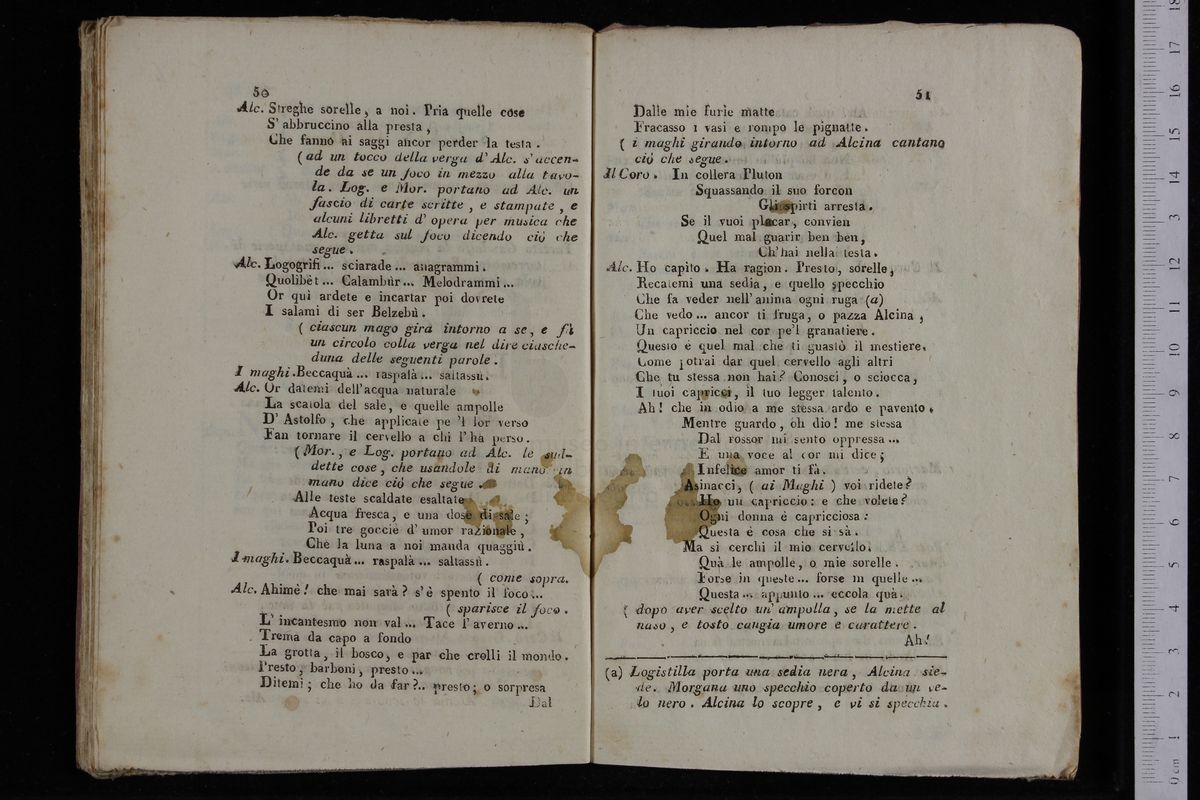 50
Alc. Streghe sorelle, a noi. Pria quelle cose
S' abbruccino alla presta,
Che fanno ai saggi ancor perder la testa.
( ad un tocco della verga d' Alc. s' accen-
de da se un foco in mezzo alla tavo-
la. Log. e Mor. portano ad Alc. un
fascio di carte scritte, e stampate, e
alcuni libretti d' opera per musica che
Alc. getta sul foco dicendo ciò che
segue.
Alc. Logogrifi... sciarade... anagrammi.
Quolibèt... Calambùr... Melodrammi...
Or quì ardete e incartar poi dovrete
I salami di ser Belzebù.
( ciascun mago gira intorno a se, e fà
un circolo colla verga nel dire ciasche-
duna delle seguenti parole.
I maghi. Beccaquà... raspalà... saltassù.
Alc. Or datemi dell'acqua naturale
La scatola del sale, e quelle ampolle
D' Astolfo, che applicate pe 'l lor verso
Fan tornare il cervello a chi l' ha perso.
( Mor., e Log. portano ad Alc. le sud-
dette cose, che usandole di mano in
mano dice ciò che segue.
Alle teste scaldate esaltate
Acqua fresca, e una dose di sale;
Poi tre goccie d' umor razionale,
Che la luna a noi manda quaggiù.
I maghi. Beccaquà... raspalà... saltassù.
( come sopra.
Alc. Ahimè! che mai sarà? s' è spento il foco...
( sparisce il foco.
L' incantesmo non val... Tace l' averno...
Trema da capo a fondo
La grotta, il bosco, e par che crolli il mondo.
Presto, barboni, presto...
Ditemi; che ho da far?.. presto; o sorpresa
Dal
51
Dalle mie furie matte
Fracasso i vasi e rompo le pignatte.
( i maghi girando intorno ad Alcina cantano
ciò che segue.
Il Coro. In collera Pluton
Squassando il suo forcon
Gli spirti arresta.
Se il vuoi placar, convien
Quel mal guarir ben ben,
Ch' hai nella testa.
Alc. Ho capito. Ha ragion. Presto, sorelle,
Recatemi una sedia, e quello specchio
Che fa veder nell' anima ogni ruga (a)
Che vedo... ancor ti fruga, o pazza Alcina,
Un capriccio nel cor pe'l granatiere.
Questo é quel mal che ti guastò il mestiere.
Come potrai dar quel cervello agli altri
Che tu stessa non hai? Conosci, o sciocca,
I tuoi capricci, il tuo legger talento.
Ah! che in odio a me stessa ardo e pavento.
Mentre guardo, oh dio! me stessa
Dal rossor mi sento oppressa...
E una voce al cor mi dice;
Infelice amor ti fà.
Asinacci, ( ai Maghi ) voi ridete?
Ho un capriccio: e che volete?
Ogni donna é capricciosa:
Questa é cosa che si sà.
Ma si cerchi il mio cervello.
Quà le ampolle, o mie sorelle.
Forse in queste... forse in quelle...
Questa... appunto... eccola quà.
( dopo aver scelto un' ampolla, se la mette al
naso, e tosto cangia umore e carattere.
Ah!
(a) Logistilla porta una sedia nera, Alcina sie-
de. Morgana uno specchio coperto da un ve-
lo nero. Alcina lo scopre, e vi si specchia.